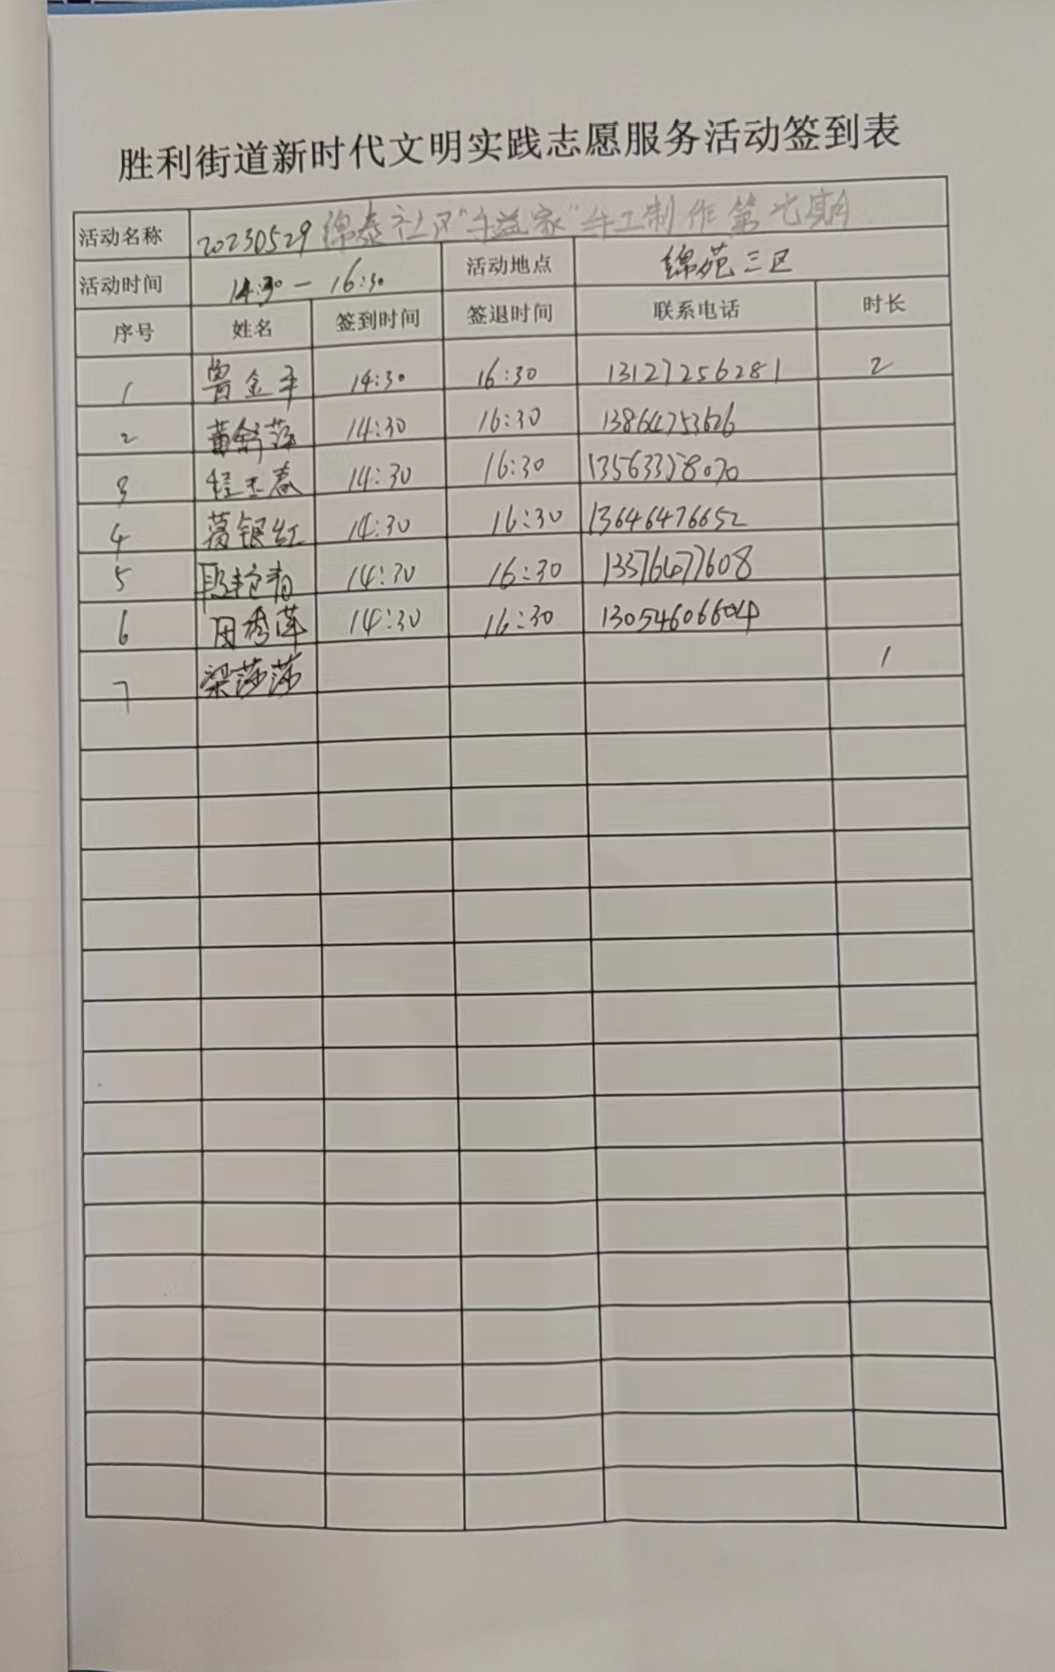 胜利街道新时代文明实践志愿服务活动签到表
活动名称 20230529 绵泰社区"手益家"手工制作第七期
活动时间 14:30-16:30 活动地点 绵苑三区
序号 姓名 签到时间 签退时间 联系电话 时长
1 曹金平 14:30 16:30 13127256281 2
2 黄舒萍 14:30 16:30 13864753626
3 程玉春 14:30 16:30
4 葛银红 14:30 16:30 13646476652
5 段艳青 14:30 16:30 13376477608
6 田秀莲 14:30 16:30 13054606604
7 梁莎莎 1